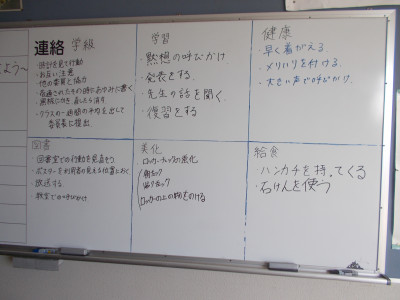 よう～
連絡 学級
・時計を見て行動
・お互い注意
・他の委員と協力
・クラスの一週間の平均を出して
委員長に提出
学習
・黙想の呼びかけ
・発表をする
・先生の話を聞く
・復習をする
健康
・早く着がえる
・メリハリを付ける
・大きい声で呼びかけ
図書
・図書室での行動を見直そう
・ポスターを利用者の見える位置におく
・放送する
・教室での呼びかけ
美化
・ロッカーチェックの強化
朝チェック
帰りチェック
ロッカーの上の物をのける
給食
・ハンカチを持ってくる
・石けんを使う